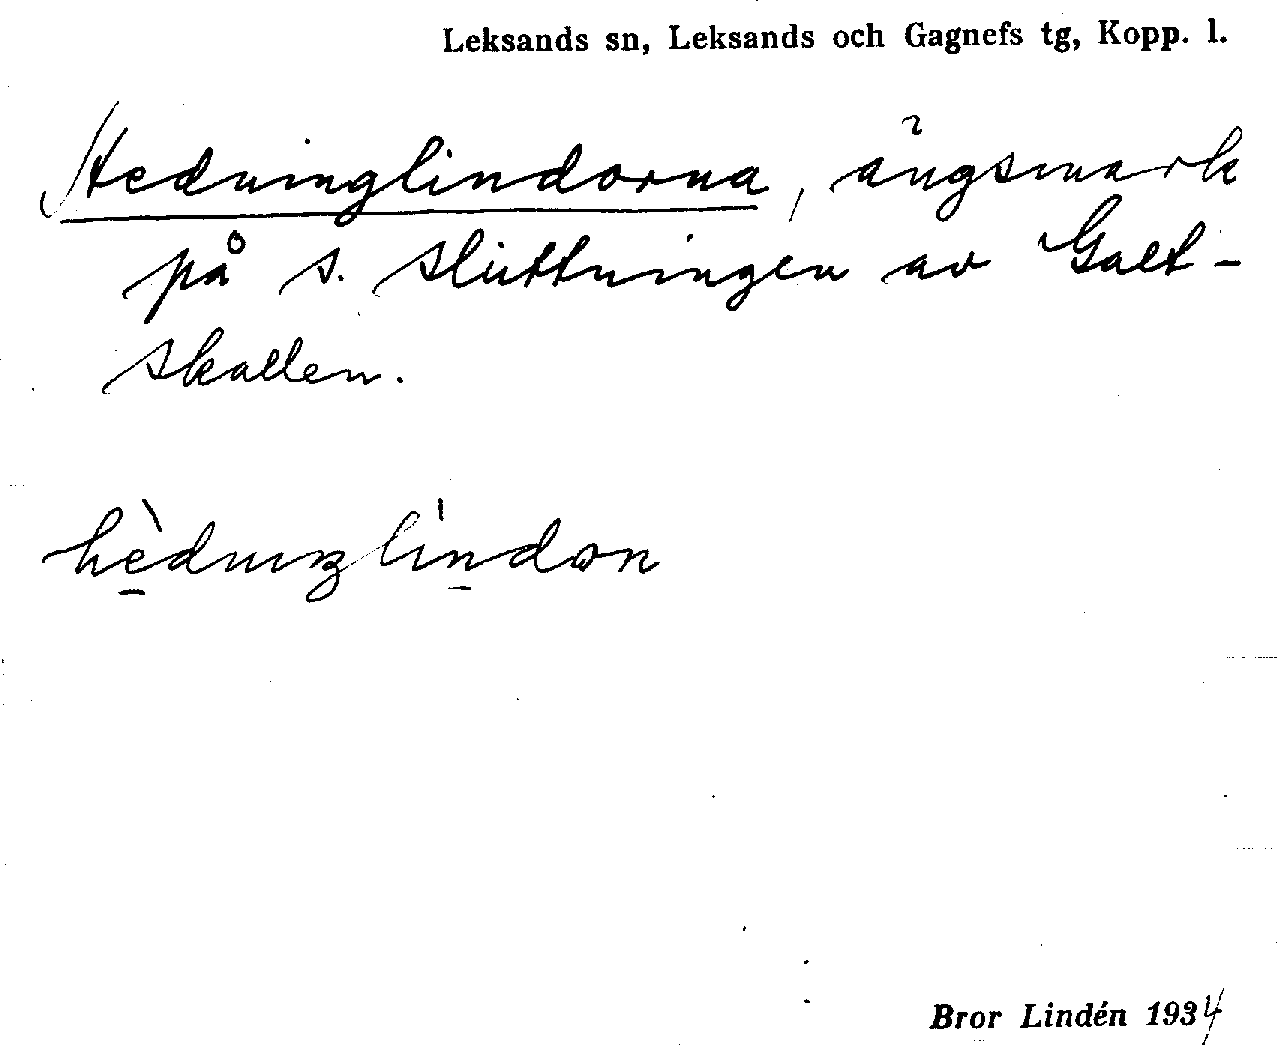 Leksands sn, Leksands och Gagnefs tg, Kopp. l.
Hedninglindorna, ängsmark
på s. sluttningen av Galt-
skallen.
hèdniŋlindon
Bror Lindén 1934